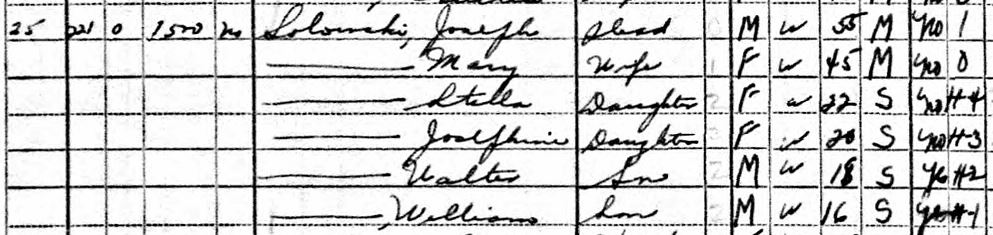 25 221 0 1500 no Solowski, Joseph Head M W 55 M no 1
—— Mary Wife 1 F W 45 M no 0
—— Stella Daughter 2 F W 22 S no H-4
—— Josephine Daughter 2 F W 20 S no H-3
—— Walter Son 2 M W 18 S yes H-2
——, William Son 2 M W 16 S yes H-1